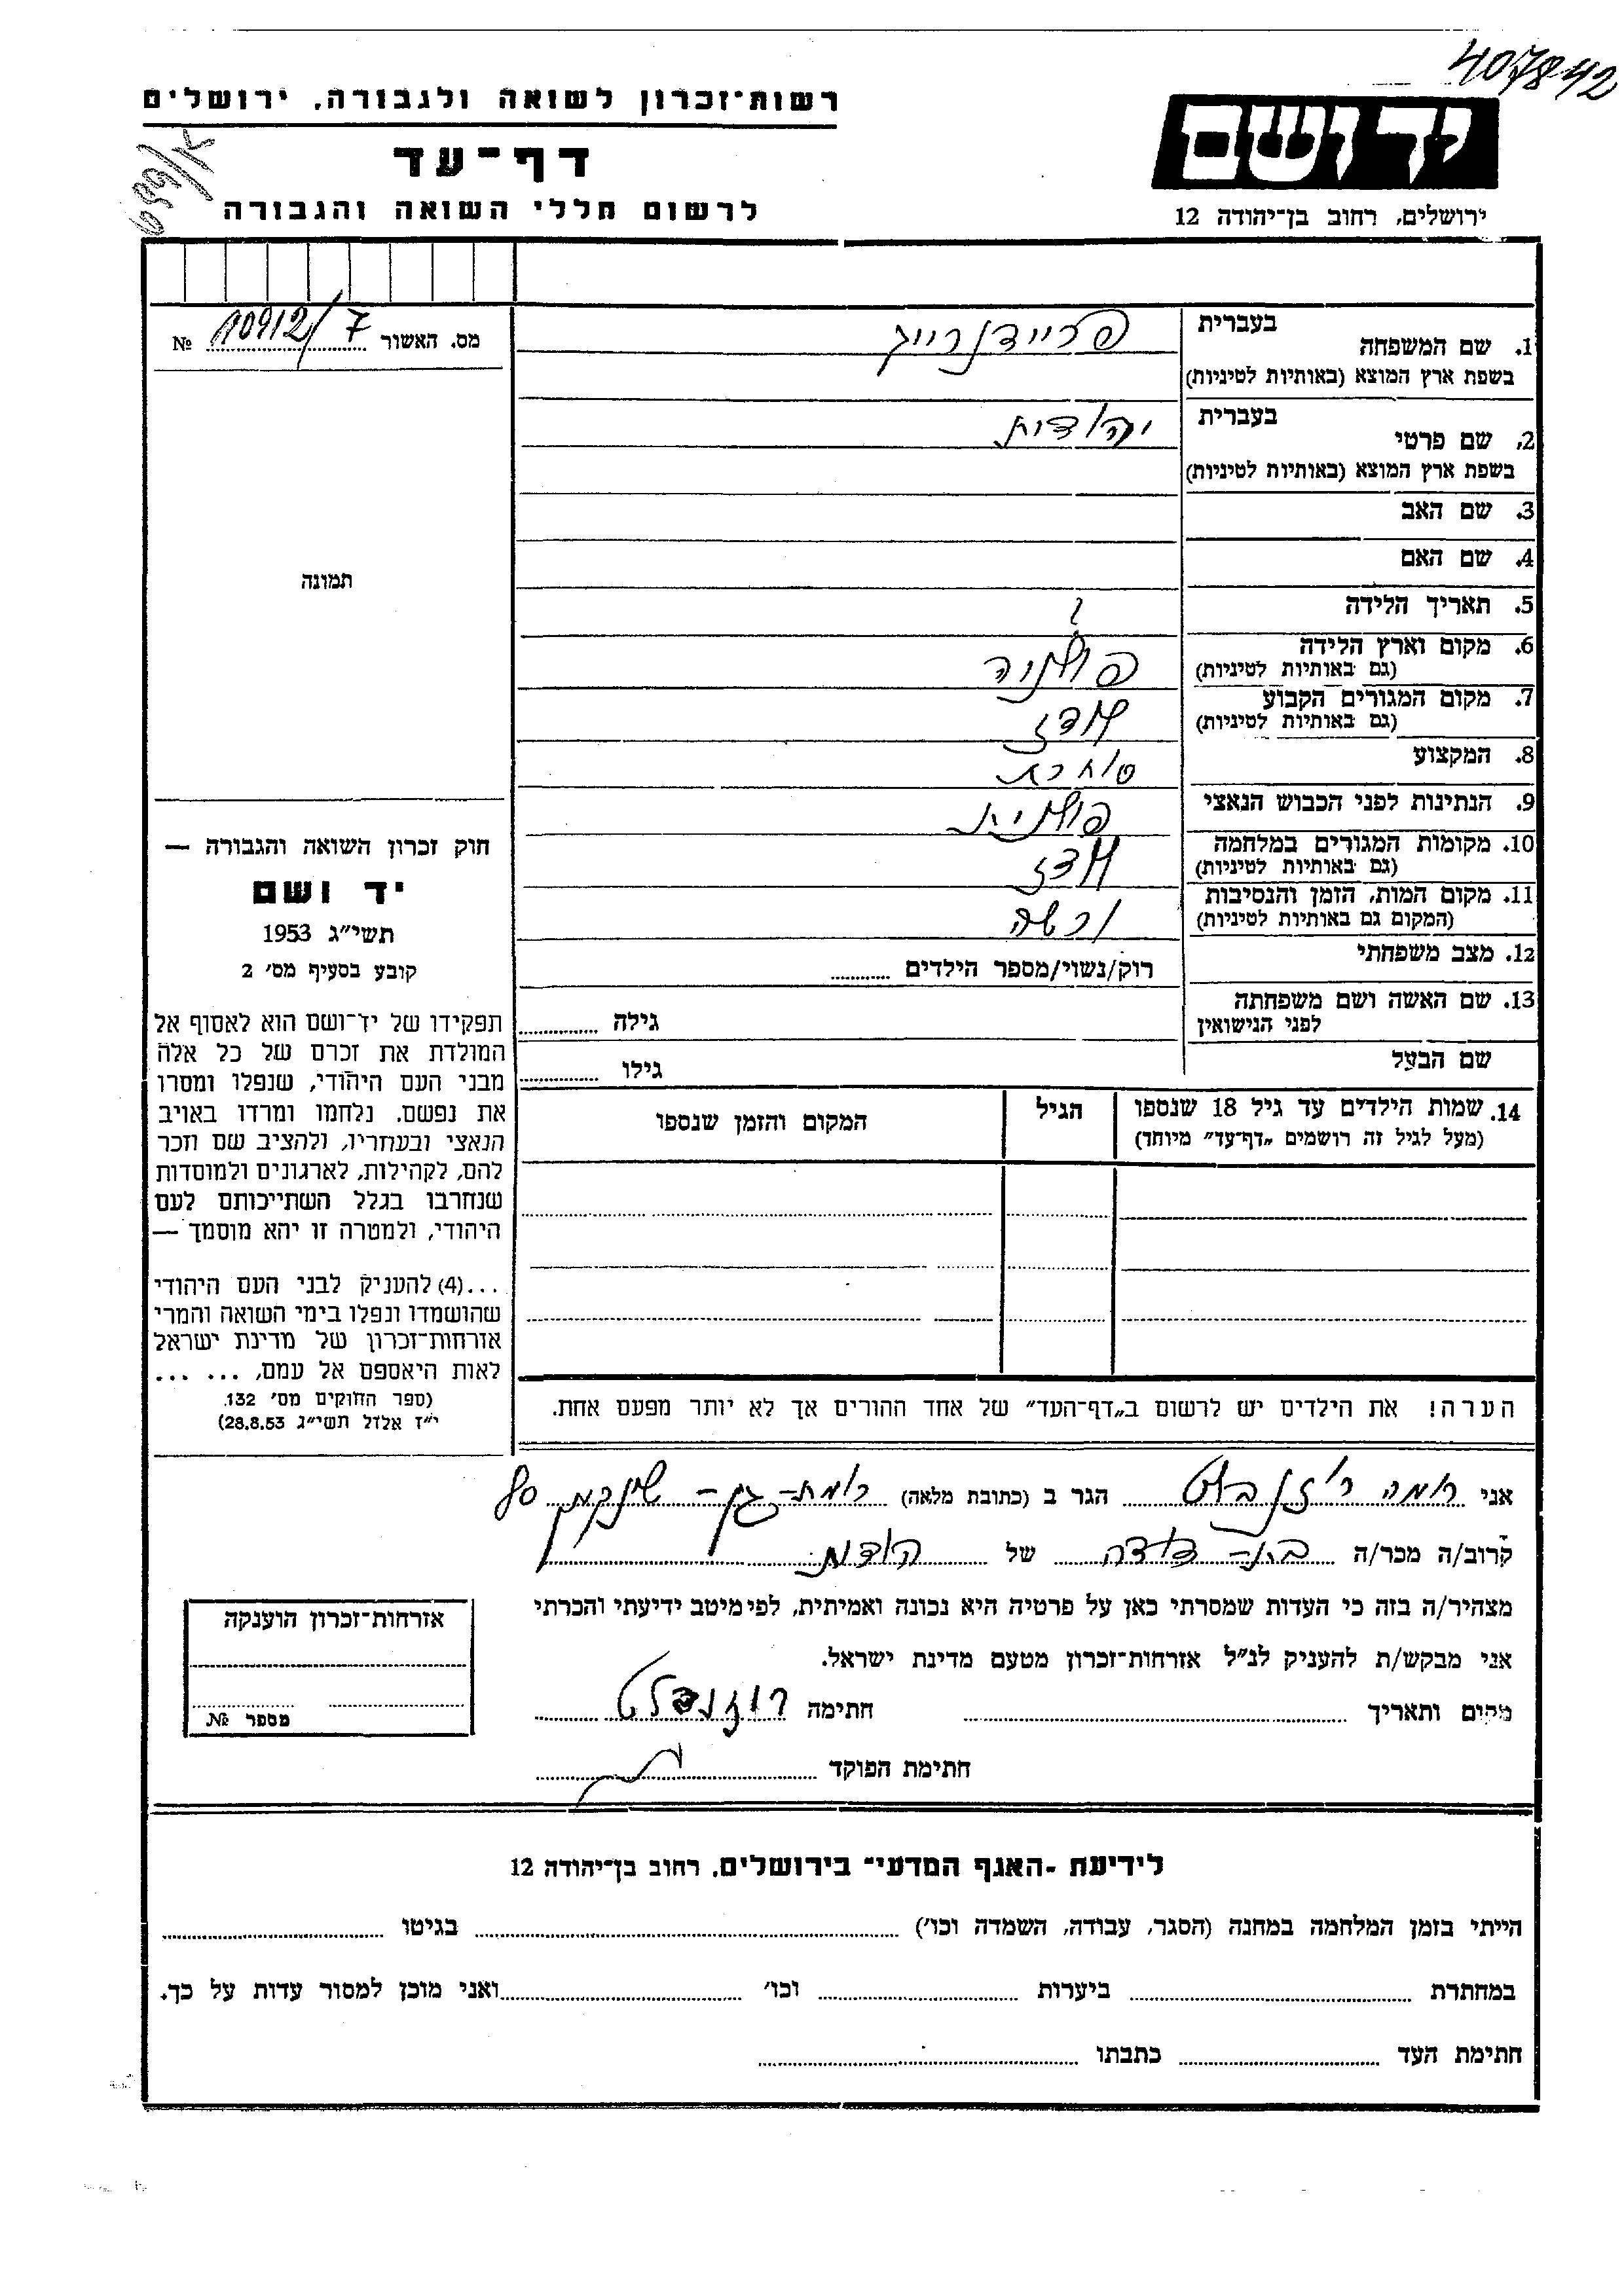 407842
רשות־זכרון לשואה ולגבורה, ירושלים
דף־עד
לרשום חללי השואה והגבורה
יד ושם
ירושלים, רחוב בן־יהודה 12
מס. האשור 10912/7 №
תמונה
1. שם המשפחה בעברית פריידנרייג
בשפת ארץ המוצא (באותיות לטיניות)
2. שם פרטי בעברית יהודית
בשפת ארץ המוצא (באותיות לטיניות)
3. שם האב
4. שם האם
5. תאריך הלידה ?
6. מקום וארץ הלידה פולניה
(גם באותיות לטיניות)
7. מקום המגורים הקבוע לודז
(גם באותיות לטיניות)
8. המקצוע סוחרת
9. הנתינות לפני הכבוש הנאצי פולנית
10. מקומות המגורים במלחמה לודז
(גם באותיות לטיניות)
11. מקום המות, הזמן והנסיבות ורשה
(המקום גם באותיות לטיניות)
12. מצב משפחתי רוק/נשוי/מספר הילדים
13. שם האשה ושם משפחתה גילה
לפני הנישואין
שם הבעל גילו
14. שמות הילדים עד גיל 18 שנספו הגיל המקום והזמן שנספו
(מעל לגיל זה רושמים „דף־עד” מיוחד)
הערה! את הילדים יש לרשום ב„דף־העד” של אחד ההורים אך לא יותר מפעם אחת.
חוק זכרון השואה והגבורה —
יד ושם
תשי״ג 1953
קובע בסעיף מס׳ 2
תפקידו של יד־ושם הוא לאסוף אל
המולדת את זכרם של כל אלה
מבני העם היהודי, שנפלו ומסרו
את נפשם. נלחמו ומרדו באויב
הנאצי ובעוזריו, ולהציב שם וזכר
להם, לקהילות, לארגונים ולמוסדות
שנחרבו בגלל השתייכותם לעם
היהודי, ולמטרה זו יהא מוסמך —
...(4) להעניק לבני העם היהודי
שהושמדו ונפלו בימי השואה והמרי
אזרחות־זכרון של מדינת ישראל
לאות היאספם אל עמם, ... ...
(ספר החוקים מס׳ 132.
י״ז אלול תשי״ג 28.8.53)
אני רוזנבלט הגר ב (כתובת מלאה) רמת-גן - 80
קרוב/ה מכר/ה בת-דודה של יהודית
מצהיר/ה בזה כי העדות שמסרתי כאן על פרטיה היא נכונה ואמיתית, לפי מיטב ידיעתי והכרתי
אני מבקש/ת להעניק לנ״ל אזרחות־זכרון מטעם מדינת ישראל.
מקום ותאריך חתימה רוזנבלט
חתימת הפוקד
אזרחות־זכרון הוענקה
מספר №
לידיעת -האגף המדעי־ בירושלים, רחוב בן־יהודה 12
הייתי בזמן המלחמה במחנה (הסגר, עבודה, השמדה וכו׳) בגיטו
במחתרת ביערות וכו׳ ואני מוכן למסור עדות על כך.
חתימת העד כתבתו